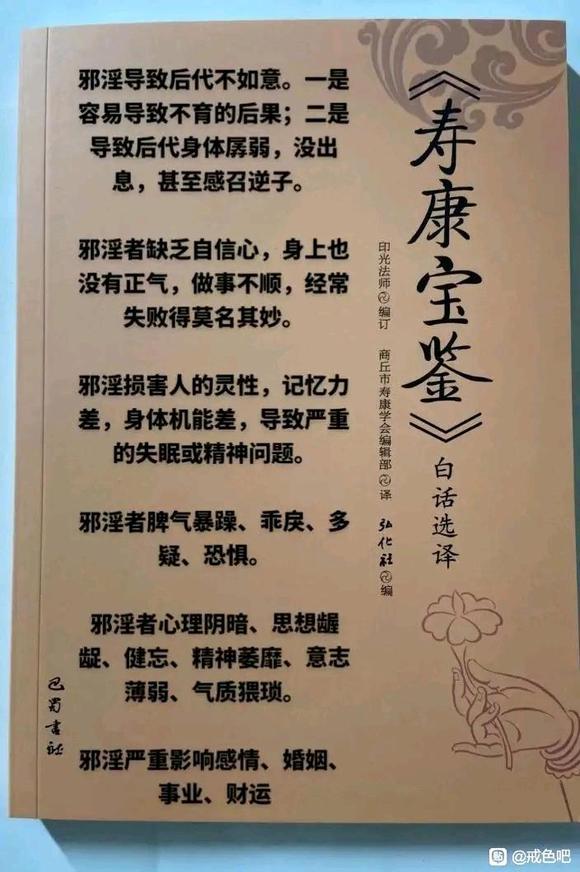 《寿康宝鉴》白话选译
印光法师 编订
商丘市寿康学会编辑部 译
弘化社 编
邪淫导致后代不如意。一是
容易导致不育的后果；二是
导致后代身体孱弱，没出
息，甚至感召逆子。
邪淫者缺乏自信心，身上也
没有正气，做事不顺，经常
失败得莫名其妙。
邪淫损害人的灵性，记忆力
差，身体机能差，导致严重
的失眠或精神问题。
邪淫者脾气暴躁、乖戾、多
疑、恐惧。
邪淫者心理阴暗、思想龌
龊、健忘、精神萎靡、意志
薄弱、气质猥琐。
邪淫严重影响感情、婚姻、
事业、财运
巴蜀书社
贴 @戒色吧